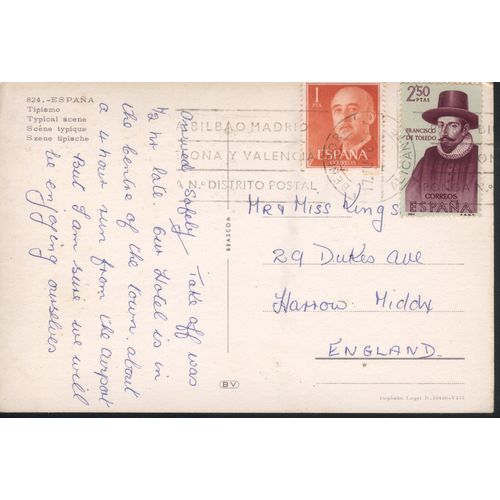 824.-ESPAÑA
Tipismo
Typical scene
Scène typique
Szene tipische
Arrived safely Take off was
1/2 hr late Our Hotel is in
the centre of the town. about
a 4 hour run from the airport
But I am sure we will
be enjoying ourselves
BEASCOA
BV
1
PTA
ESPAÑA
CORREOS
2'50
PTAS
FRANCISCO
DE TOLEDO
CORREOS
ESPAÑA
A BILBAO MADRID
ONA Y VALENCIA
A N.º DISTRITO POSTAL
ALICANTE
Mr & Miss Kings
29 Dukes Ave
Harrow Middx
ENGLAND